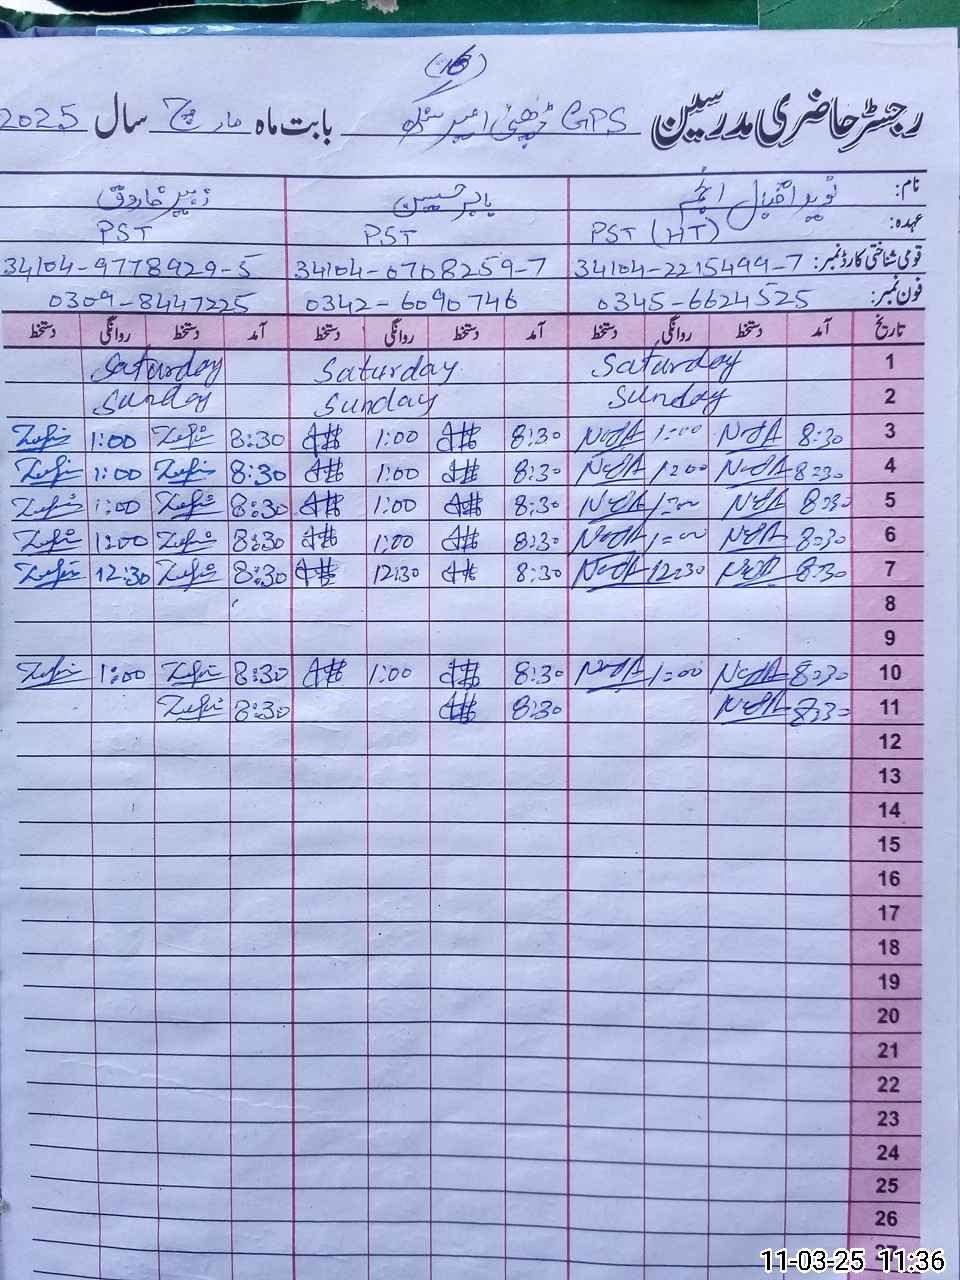 (16)
رجسٹر حاضری مدرسین GPS امیر بابت ماہ مارچ سال 2025
نام: نوید اقبال انجم بابر حسین زبیر فاروق
عہدہ: PST (HT) PST PST
قومی شناختی کارڈ نمبر: 34104-2215499-7 34104-0708259-7 34104-9778929-5
فون نمبر: 0345-6624525 0342-6090746 0309-8447225
تاریخ آمد دستخط روانگی دستخط آمد دستخط روانگی دستخط آمد دستخط روانگی دستخط
1 Saturday Saturday Saturday
2 Sunday Sunday Sunday
3 8:30 1:00 8:30 1:00 8:30 1:00
4 8:30 1:00 8:30 1:00 8:30 1:00
5 8:30 1:00 8:30 1:00 8:30 1:00
6 8:30 1:00 8:30 1:00 8:30 1:00
7 8:30 12:30 8:30 12:30 8:30 12:30
8
9
10 8:30 1:00 8:30 1:00 8:30 1:00
11 8:30 8:30 8:30
12
13
14
15
16
17
18
19
20
21
22
23
24
25
26
27
11-03-25 11:36